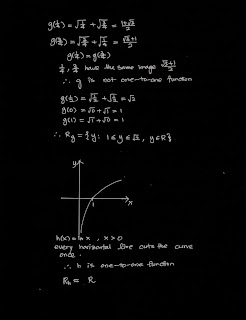 g(¼) = √¼ + √¾ = (1+√3)/2
g(¾) = √¾ + √¼ = (√3+1)/2
g(¼) = g(¾)
¼, ¾ have the same image (√3+1)/2
∴ g is not one-to-one function
g(½) = √½ + √½ = √2
g(0) = √0 + √1 = 1
g(1) = √1 + √0 = 1
∴ Rg = {y: 1≤y≤√2, y∈R}
y
1
x
h(x) = ln x , x>0
every horizontal line cuts the curve
once.
∴ h is one-to-one function
Rh = R